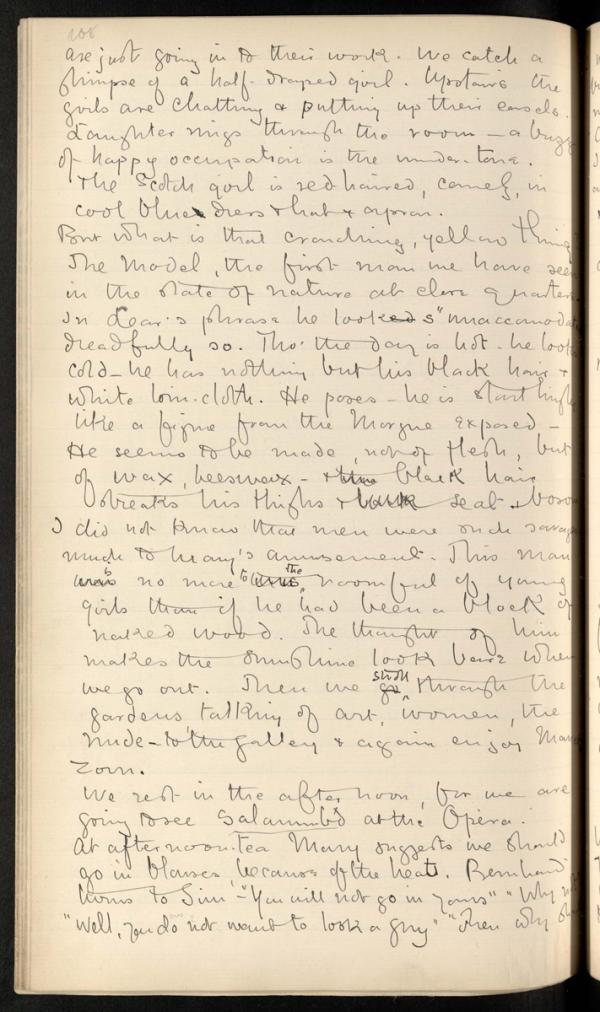 108
are just going in to their work. We catch a
glimpse of a half-draped girl. Upstairs the
girls are chatting & putting up their easels.
Laughter rings through the room – a buzz
of happy occupation is the under-tone.
The Scotch girl is red haired, comely, in
cool blue dress & hat & apron.
But what is that crouching, yellow thing
The Model, the first man we have seen
in the state of nature at close quarters
In Lear's phrase he looked s "unaccomodat
dreadfully so. Tho' the day is hot - he looks
cold – he has nothing but his black hair &
white loin-cloth. He poses – he is
like a figure from the Morgue exposed –
He seems to be made, not of flesh, but
of wax, beeswax – & black hair
streaks his thighs & seat & bosom
I did not know that men were such savage
much to Mary's amusement. This man
was is no more to the roomful of young
girls than if he had been a block of
naked wood. The thought of him
makes the sunshine look bare when
we go out. Then we go stroll through the
gardens, talking of art, women, the
nude – to the gallery & again enjoy
Zorn.
We rest in the afternoon, for we are
going to see Salammbô at the Opera.
At afternoon-tea Mary suggests we should
go in blouses because of the heat. Bernhard
turns to Sim – "You will not go in yours" "Why not
"Well, you do not want to look a guy" "Then why